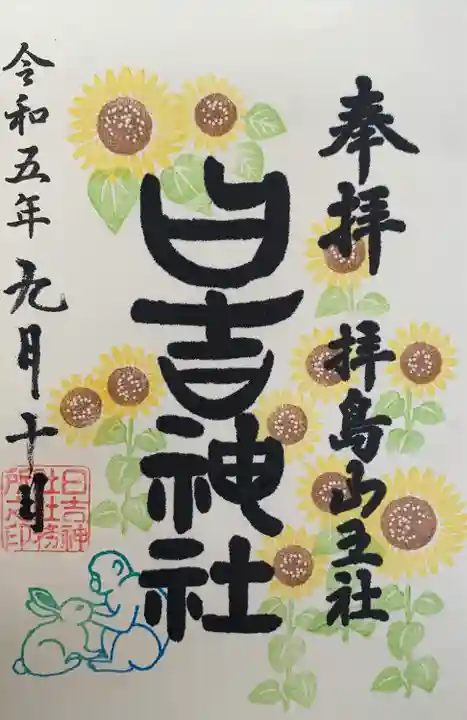 奉拝 拝島山王社
日吉神社
令和五年九月十日
日吉神
社社務
所之印